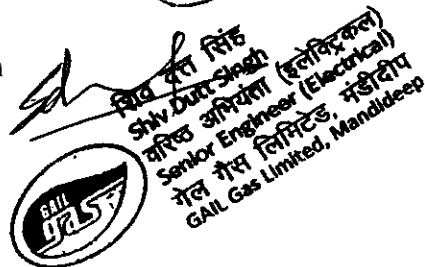 शिव दत्त सिंह
Shiv Dutt Singh
वरिष्ठ अभियंता (इलेक्ट्रिकल)
Senior Engineer (Electrical)
गेल गैस लिमिटेड, मंडीदीप
GAIL Gas Limited, Mandideep
GAIL
gas